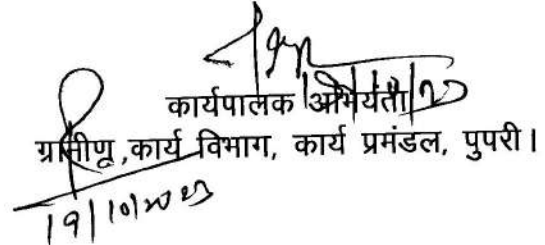 कार्यपालक अभियंता
ग्रामीण ,कार्य विभाग, कार्य प्रमंडल, पुपरी।
19/10/2023